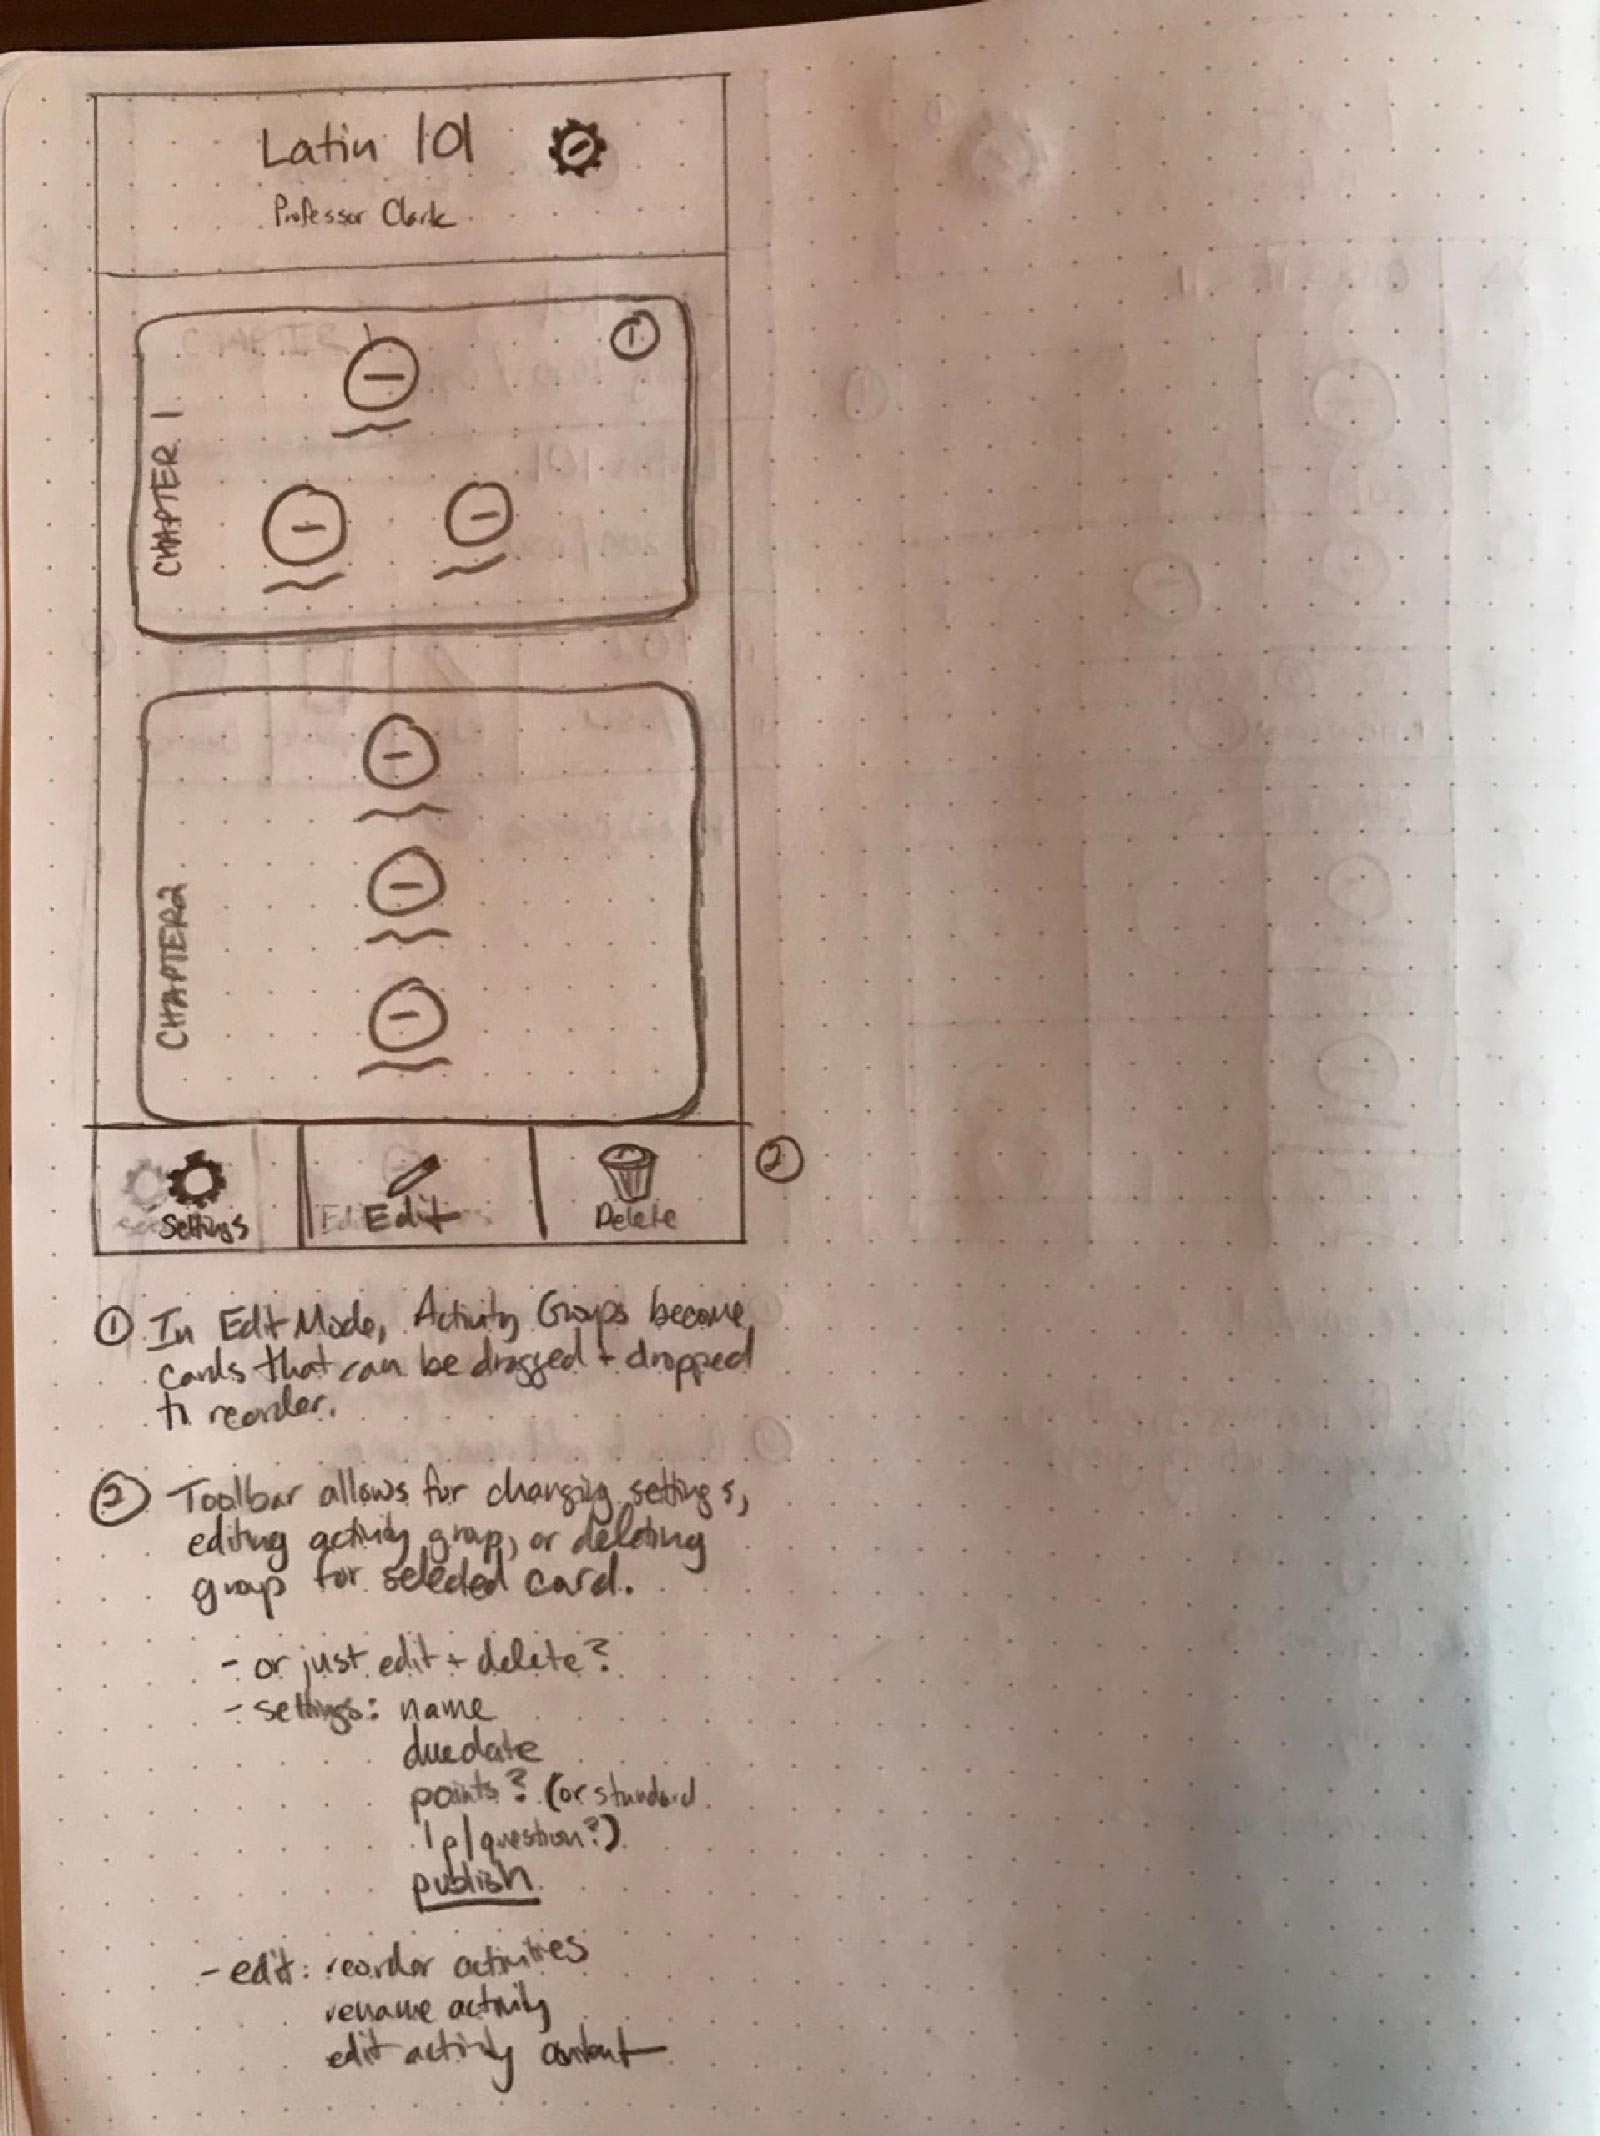 Latin 101
Professor Clark
1
CHAPTER 1
CHAPTER 2
2
Settings
Edit
Delete
① In Edit Mode, Activity Groups become
cards that can be dragged + dropped
to reorder.
② Toolbar allows for changing settings,
editing activity group, or deleting
group for selected card.
- or just edit + delete?
- settings: name
due date
points? (or standard
1p/question?)
publish
- edit: reorder activities
rename activity
edit activity content